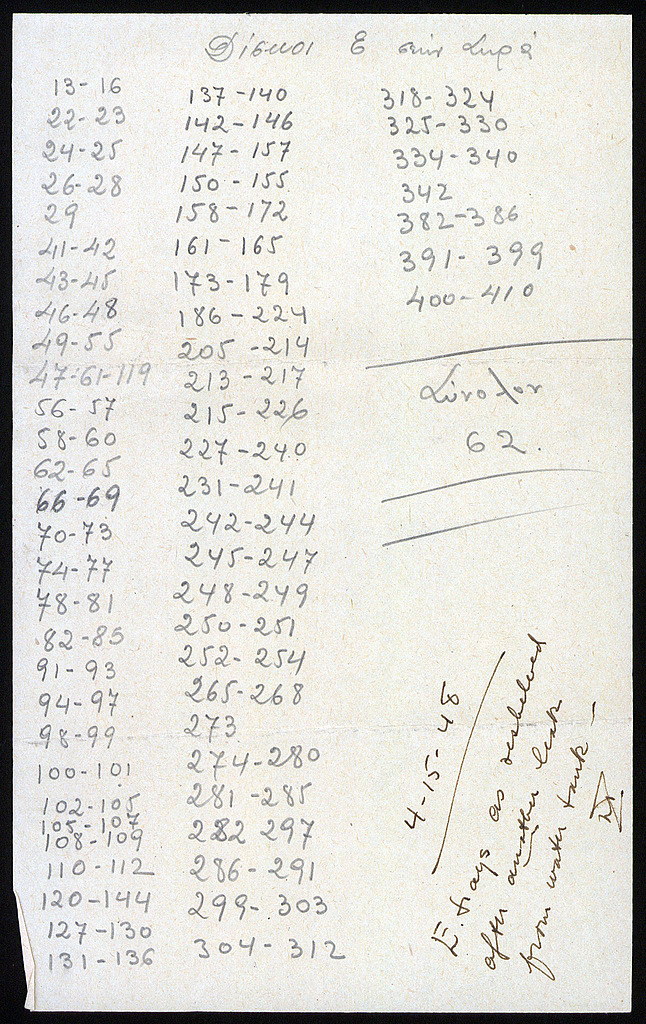 Δίσκοι Ε στην σειρά
13-16
22-23
24-25
26-28
29
41-42
43-45
46-48
49-55
47-61-119
56-57
58-60
62-65
66-69
70-73
74-77
78-81
82-85
91-93
94-97
98-99
100-101
102-105
105-107
108-109
110-112
120-144
127-130
131-136
137-140
142-146
147-157
150-155
158-172
161-165
173-179
186-224
205-214
213-217
215-226
227-240
231-241
242-244
245-247
248-249
250-251
252-254
265-268
273
274-280
281-285
282 297
286-291
299-303
304-312
318-324
325-330
334-340
342
382-386
391-399
400-410
Σύνολον
62.
4-15-48
E. trays as reshelved
after another leak
from water tank –